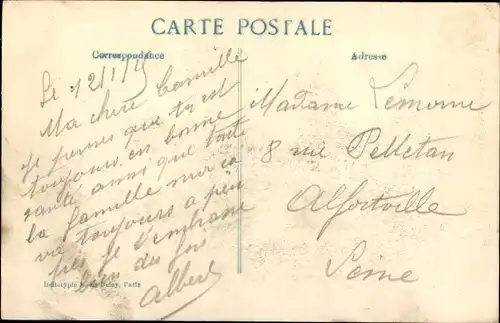 CARTE POSTALE
Correspondance
Adresse
Le 12/1/15
Ma chère Camille
Je pense que tu est
toujours en bonne
santé ainsi que toute
la famille moi ça
va toujours à peu
près Je t'embrasse
bien des fois
Albert
Madame Lemorne
8 rue Pelletan
Alfortville
Seine
Paris